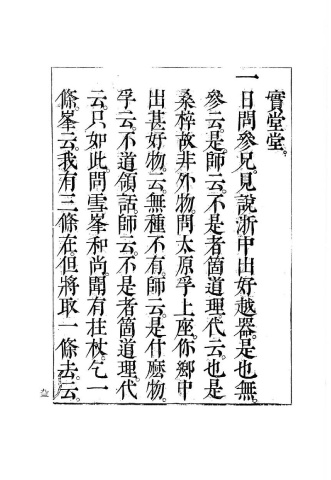 實堂堂。
一日問參兄。見說浙中出好越器。是也無。
參云。是。師云。不是者箇道理。代云。也是
桑梓。故非外物。問太原孚上座。你鄉中
出甚好物。云。無種不有。師云。是什麼物。
孚云。不道領話。師云。不是者箇道理。代
云。只如此。問雪峯和尚。聞有拄杖。乞一
條。峯云。我有三條在。但將取一條去。云。